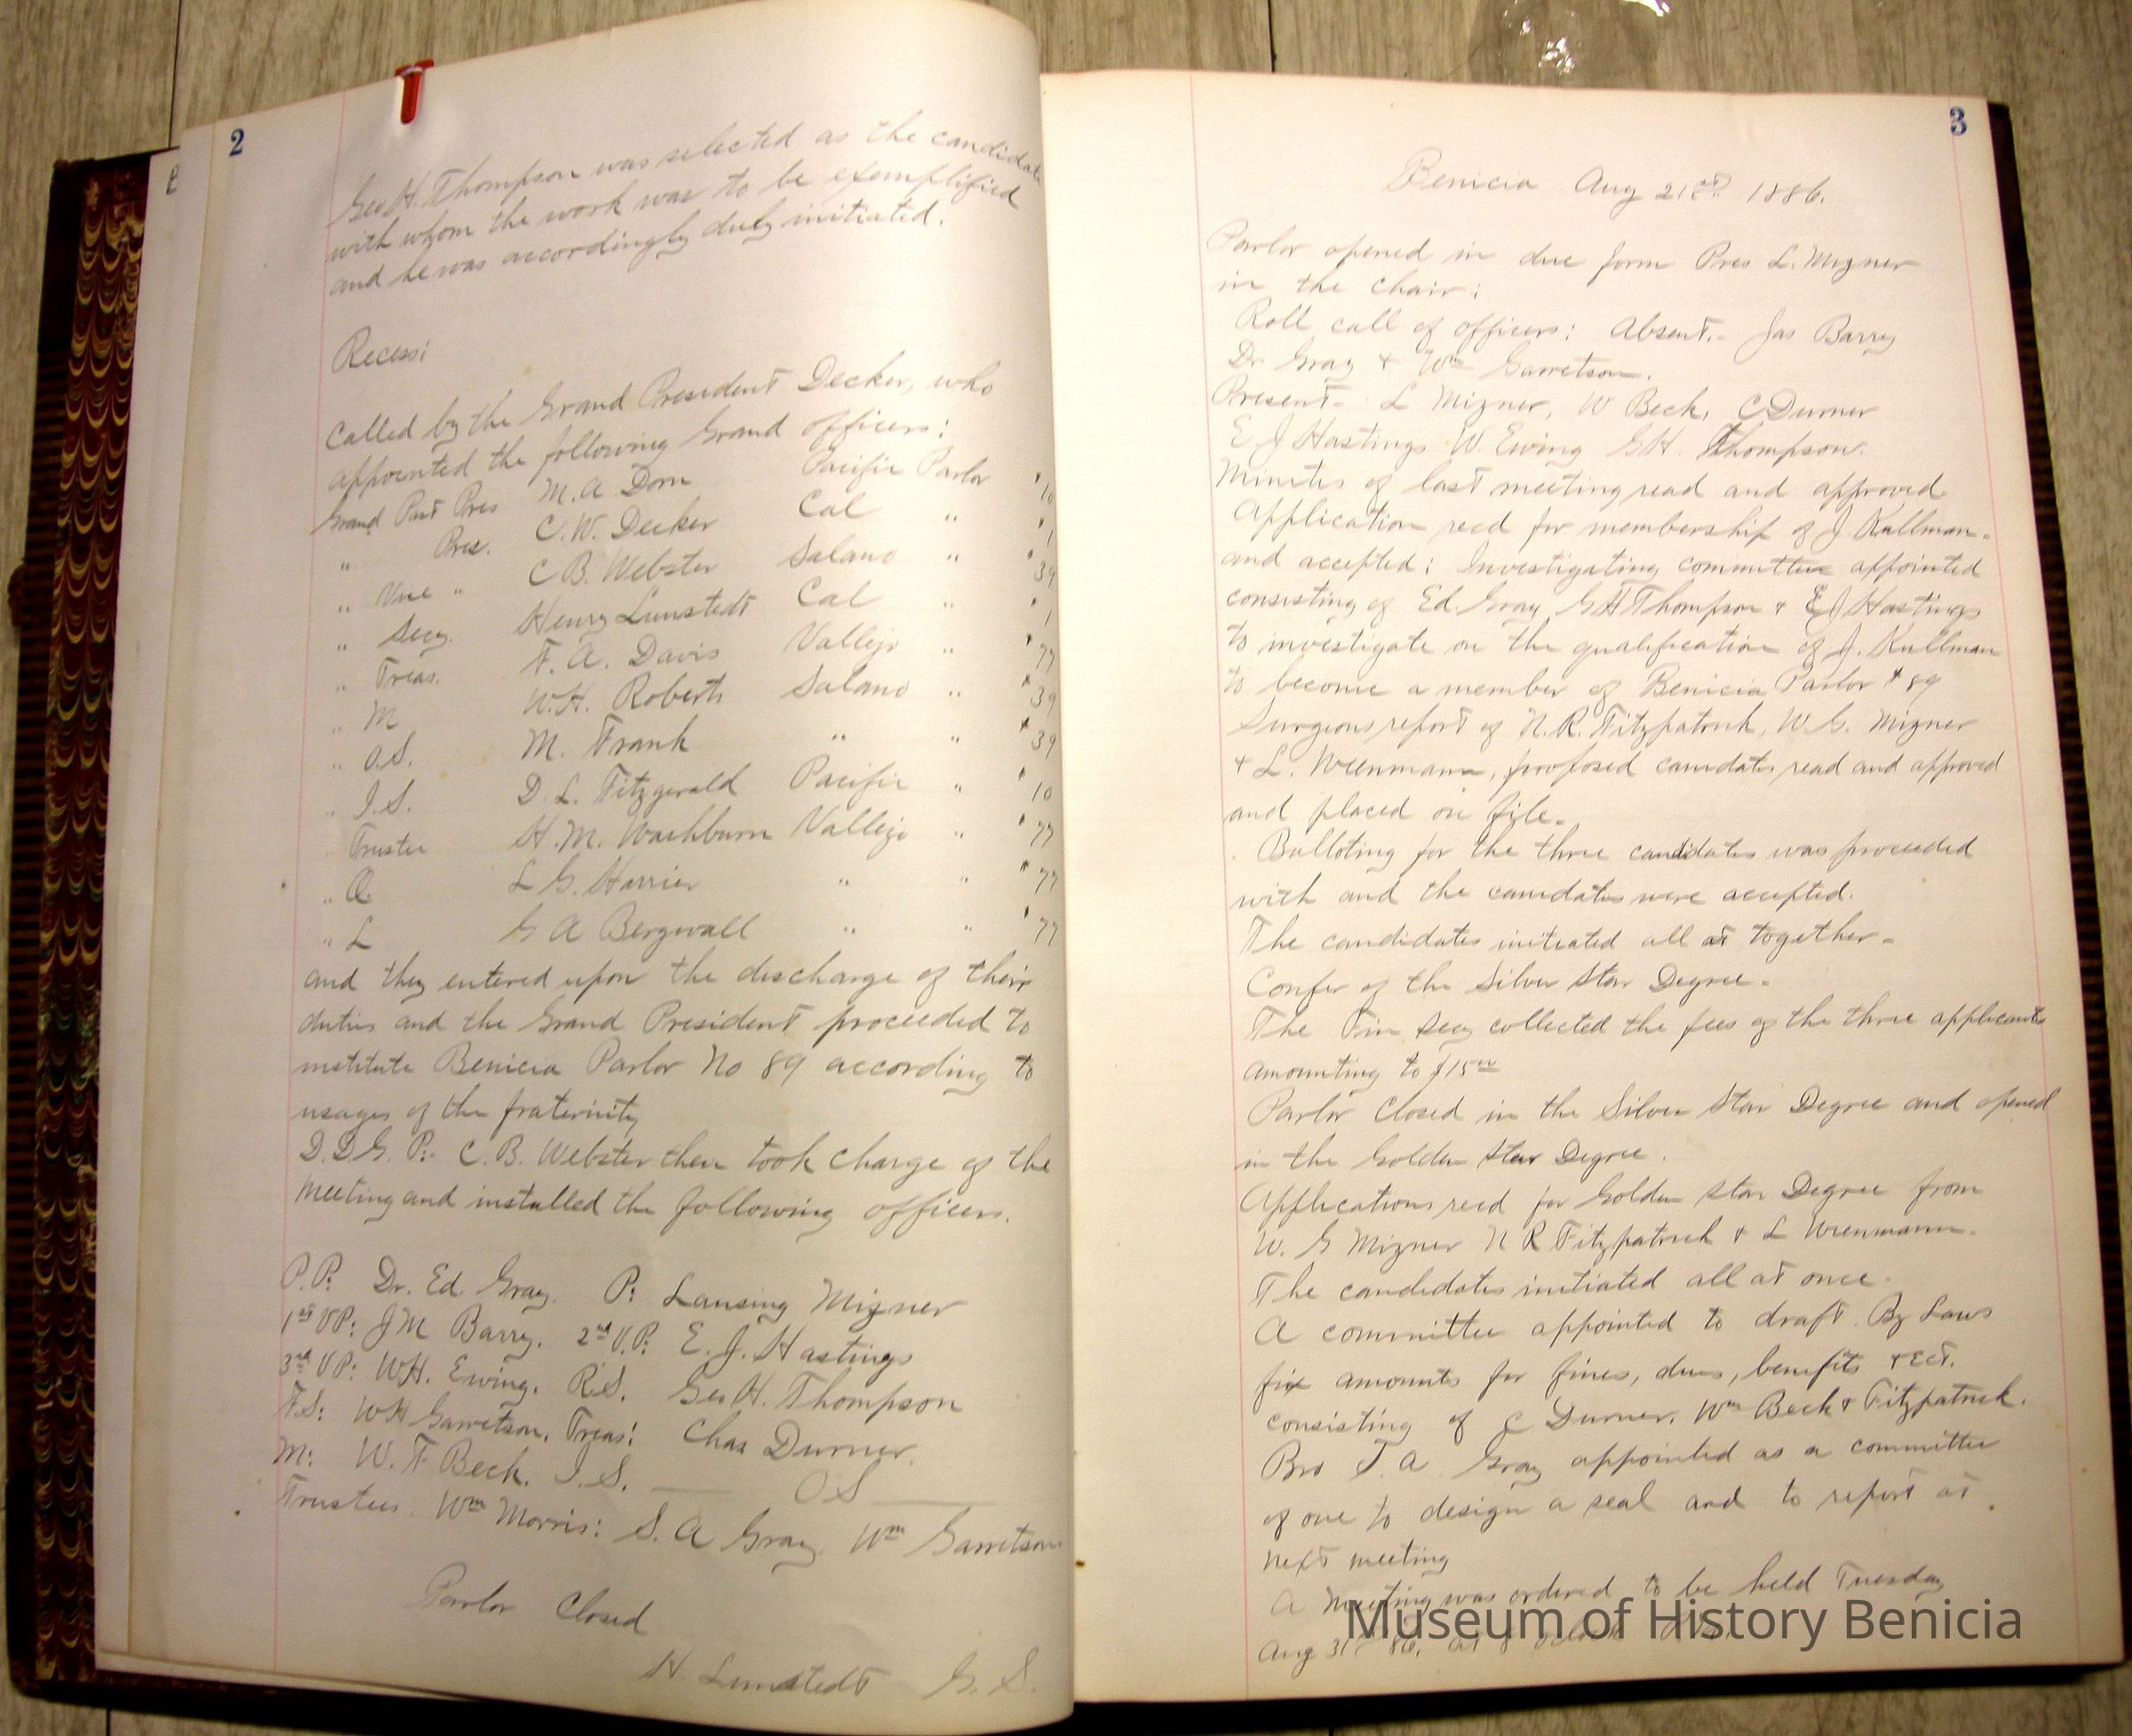 2
Geo H. Thompson was selected as the candidate
with whom the work was to be exemplified
and he was accordingly duly initiated.
Recess:
Called by the Grand President Decker, who
appointed the following Grand officers:
Grand Past Pres M. A Dorn Pacific Parlor # 10
" Pres. C. W. Decker Cal " # 1
" Vice " C B. Webster Solano " # 39
" Secy. Henry Lunstedt Cal " # 1
" Treas. F. A. Davis Vallejo " # 77
" M W. H. Roberts Solano " # 39
" O.S. M. Frank " " # 39
" I.S. D. L. Fitzgerald Pacific " # 10
" Trustee H. M. Washburn Vallejo " # 77
" O. L G. Harrier " " # 77
" L G A Bergwall " " # 77
and they entered upon the discharge of their
duties and the Grand President proceeded to
institute Benicia Parlor No 89 according to
usages of the fraternity
D.D.G. P:. C. B. Webster then took charge of the
meeting and installed the following officers.
P.P: Dr. Ed. Gray. P: Lansing Mizner
1st VP: J M Barry. 2nd V.P: E. J. Hastings
3rd VP: W H. Ewing. R.S. Geo H. Thompson
F.S: W H Garretson. Treas: Chas Durner.
M: W. F Beck. I. S. ____ O S ____
Trustees. Wm Morris: S. A Gray. Wm Garretson
Parlor Closed
H. Lunstedt G. S.
3
Benicia Aug 21st 1886.
Parlor opened in due form Pres L. Mizner
in the chair:
Roll call of officers: Absent.- Jas Barry
Dr Gray + Wm Garretson.
Present- L Mizner, W Beck, C Durner
E J Hastings W. Ewing G H. Thompson.
Minutes of last meeting read and approved
Application recd for membership of J Kullman-
and accepted: Investigating committee appointed
consisting of Ed. Gray, G H Thompson + E J Hastings
to investigate on the qualification of J. Kullman
to become a member of Benicia Parlor # 89
Surgeons report of N. R. Fitzpatrick, W. G. Mizner
+ L. Wrenmann, proposed canidates read and approved
and placed on file.
Balloting for the three candidates was proceeded
with and the canidates were accepted.
The candidates initiated all at together-
Confer of the Silver Star Degree.
The Fin Secy collected the fees of the three applicants
amounting to $15 00
Parlor Closed in the Silver Star Degree and opened
in the Golden Star Degree.
Applications recd for Golden Star Degree from
W. G Mizner N R Fitzpatrick + L Wrenmann.
The candidates initiated all at once.
A committee appointed to draft By Laws
fix amounts for fines, dues, benefits + ect.
consisting of C Durner, Wm Beck + Fitzpatrick.
Bro S. A Gray appointed as a committee
of one to design a seal and to report at
next meeting
A meeting was ordered to be held Tuesday
Aug 31st 86, at 8 oclock
Museum of History Benicia